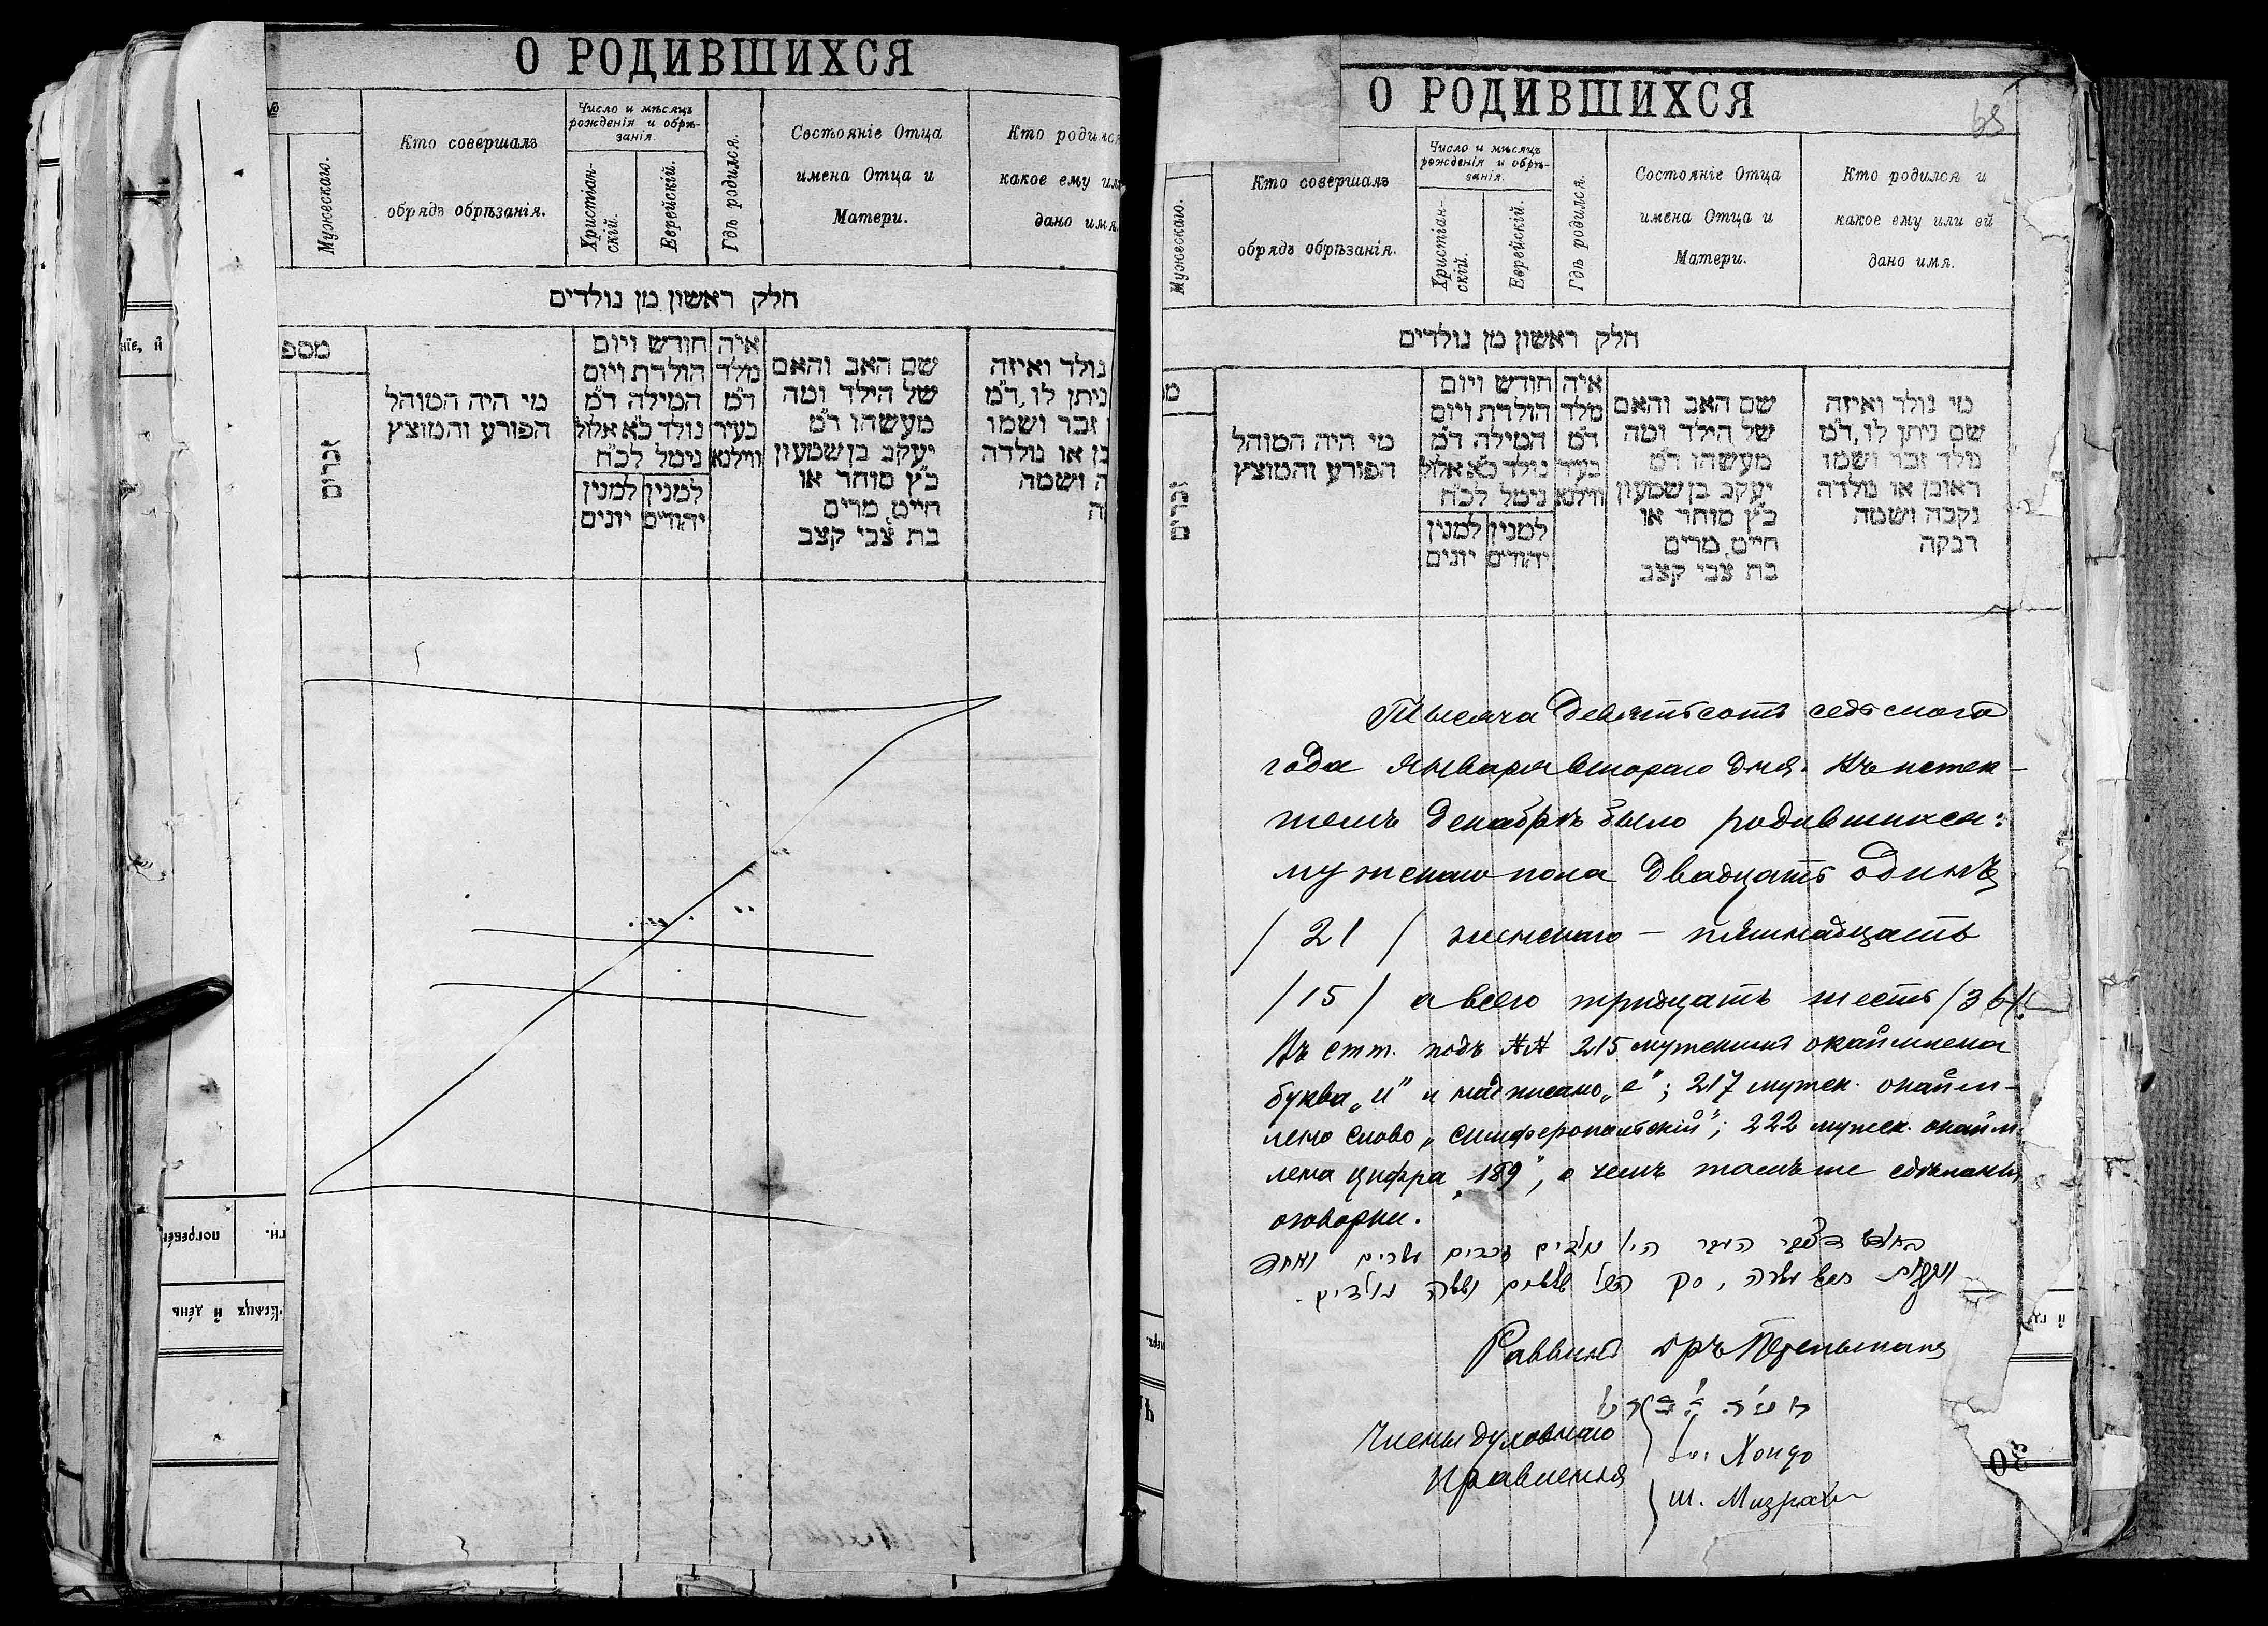 О РОДИВШИХСЯ
Мужескаго.
Кто совершалъ
обрядъ обрѣзанія.
Число и мѣсяцъ
рожденія и обрѣ-
занія.
Христіан-
скій.
Еврейскій.
Гдѣ родился.
Состояніе Отца
имена Отца и
Матери.
Кто родился
какое ему или
дано имя.
חלק ראשון מן נולדים
מספ
זכרים
מי היה המוהל
הפורע והמוצץ
חודש ויום
הולדת ויום
המילה ד״מ
נולד כ״א אלול
נימל לכ״ח
למנין
יהודים
למנין
יונים
איה
מלד
ד״מ
בעיר
ווילנא
שם האב והאם
של הילד ומה
מעשהו ד״מ
יעקב בן שמעון
כ״ץ סוחר או
חייט, מרים
בת צבי קצב
נולד ואיזה
ניתן לו, ד״מ
זכר ושמו
בן או נולדה
ה ושמה
ה
О РОДИВШИХСЯ
68
Мужескаго.
Кто совершалъ
обрядъ обрѣзанія.
Число и мѣсяцъ
рожденія и обрѣ-
занія.
Христіан-
скій.
Еврейскій.
Гдѣ родился.
Состояніе Отца
имена Отца и
Матери.
Кто родился и
какое ему или ей
дано имя.
חלק ראשון מן נולדים
זכרים
מי היה המוהל
הפורע והמוצץ
חודש ויום
הולדת ויום
המילה ד״מ
נולד כ״א אלול
נימל לכ״ח
למנין
יהודים
למנין
יונים
איה
מלד
ד״מ
בעיר
ווילנא
שם האב והאם
של הילד ומה
מעשהו ד״מ
יעקב בן שמעון
כ״ץ סוחר או
חייט, מרים
בת צבי קצב
מי נולד ואיזה
שם ניתן לו, ד״מ
נולד זכר ושמו
ראובן או נולדה
נקבה ושמה
רבקה
Тысяча девятьсотъ седьмого
года января второго дня. Въ истек-
шемъ декабрѣ было родившихся:
мужескаго пола двадцать одинъ
/ 21 / женскаго — пятнадцать
/ 15 / а всего тридцать шесть / 36 /.
Въ стт. подъ №№ 215 мужскимъ окаймлена
буква „и" и надписано „е"; 217 мужск. окайм-
лено слово „симферопольскій"; 222 мужск. окайм-
лена цифра „189", о чемъ тамъ же сдѣланы
оговорки.
היו נולדים זכרים עשרים ואחד
חמש עשרה, סך הכל שלשים וששה נולדים.
Раввинъ
Члены духовнаго
правленія
Хондо
Ш. Мизрахи
30
погребе́
мѣсяцъ и день